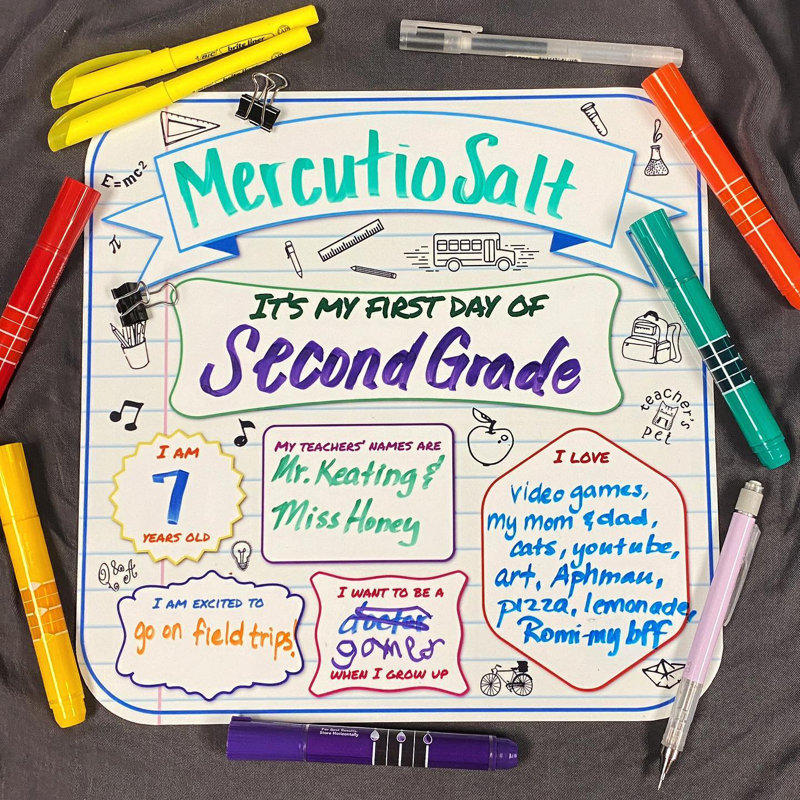 BIC brite liner
BIC brite liner
E=mc²
Mercutio Salt
π
IT'S MY FIRST DAY OF
Second Grade
teacher's
pet
I AM
7
YEARS OLD
MY TEACHERS' NAMES ARE
Mr. Keating &
Miss Honey
I LOVE
video games,
my mom & dad,
cats, youtube,
art, Aphmau,
pizza, lemonade,
Romi-my bff
Q&A
I AM EXCITED TO
go on field trips!
I WANT TO BE A
doctor
gamer
WHEN I GROW UP
For Best Results,
Store Horizontally